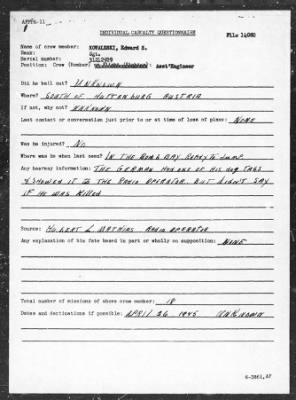 AFPPA-11
INDIVIDUAL CASUALTY QUESTIONNAIRE
File 14080
Name of crew member: KOWALESKI, Edward S.
Rank: Sgt.
Serial number:
Position: Crew (Bomber) Asst"Engineer
Did he bail out? UNKNOWN
Where? SOUTH OF AUSTRIA
If not, why not? UNKNOWN
Last contact or conversation just prior to or at time of loss of plane: NONE
Was he injured? NO
Where was he when last seen? IN THE BOMB BAY READY TO JUMP.
Any hearsay information: THE GERMAN HAD ONE OF HIS DOG TAGS
& SHOWED IT TO THE RADIO OPERATOR. BUT DIDN'T SAY
IF HE WAS KILLED
Source: HUBERT L. MATHIAS RADIO OPERATOR
Any explanation of his fate based in part or wholly on supposition: NONE
Total number of missions of above crew member: 18
Dates and destinations if possible: APRIL 26 1945 UNKNOWN
6-3861,AF